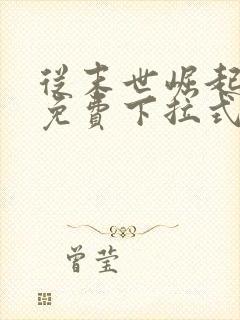 從末世崛起
免費下拉式
曾莹